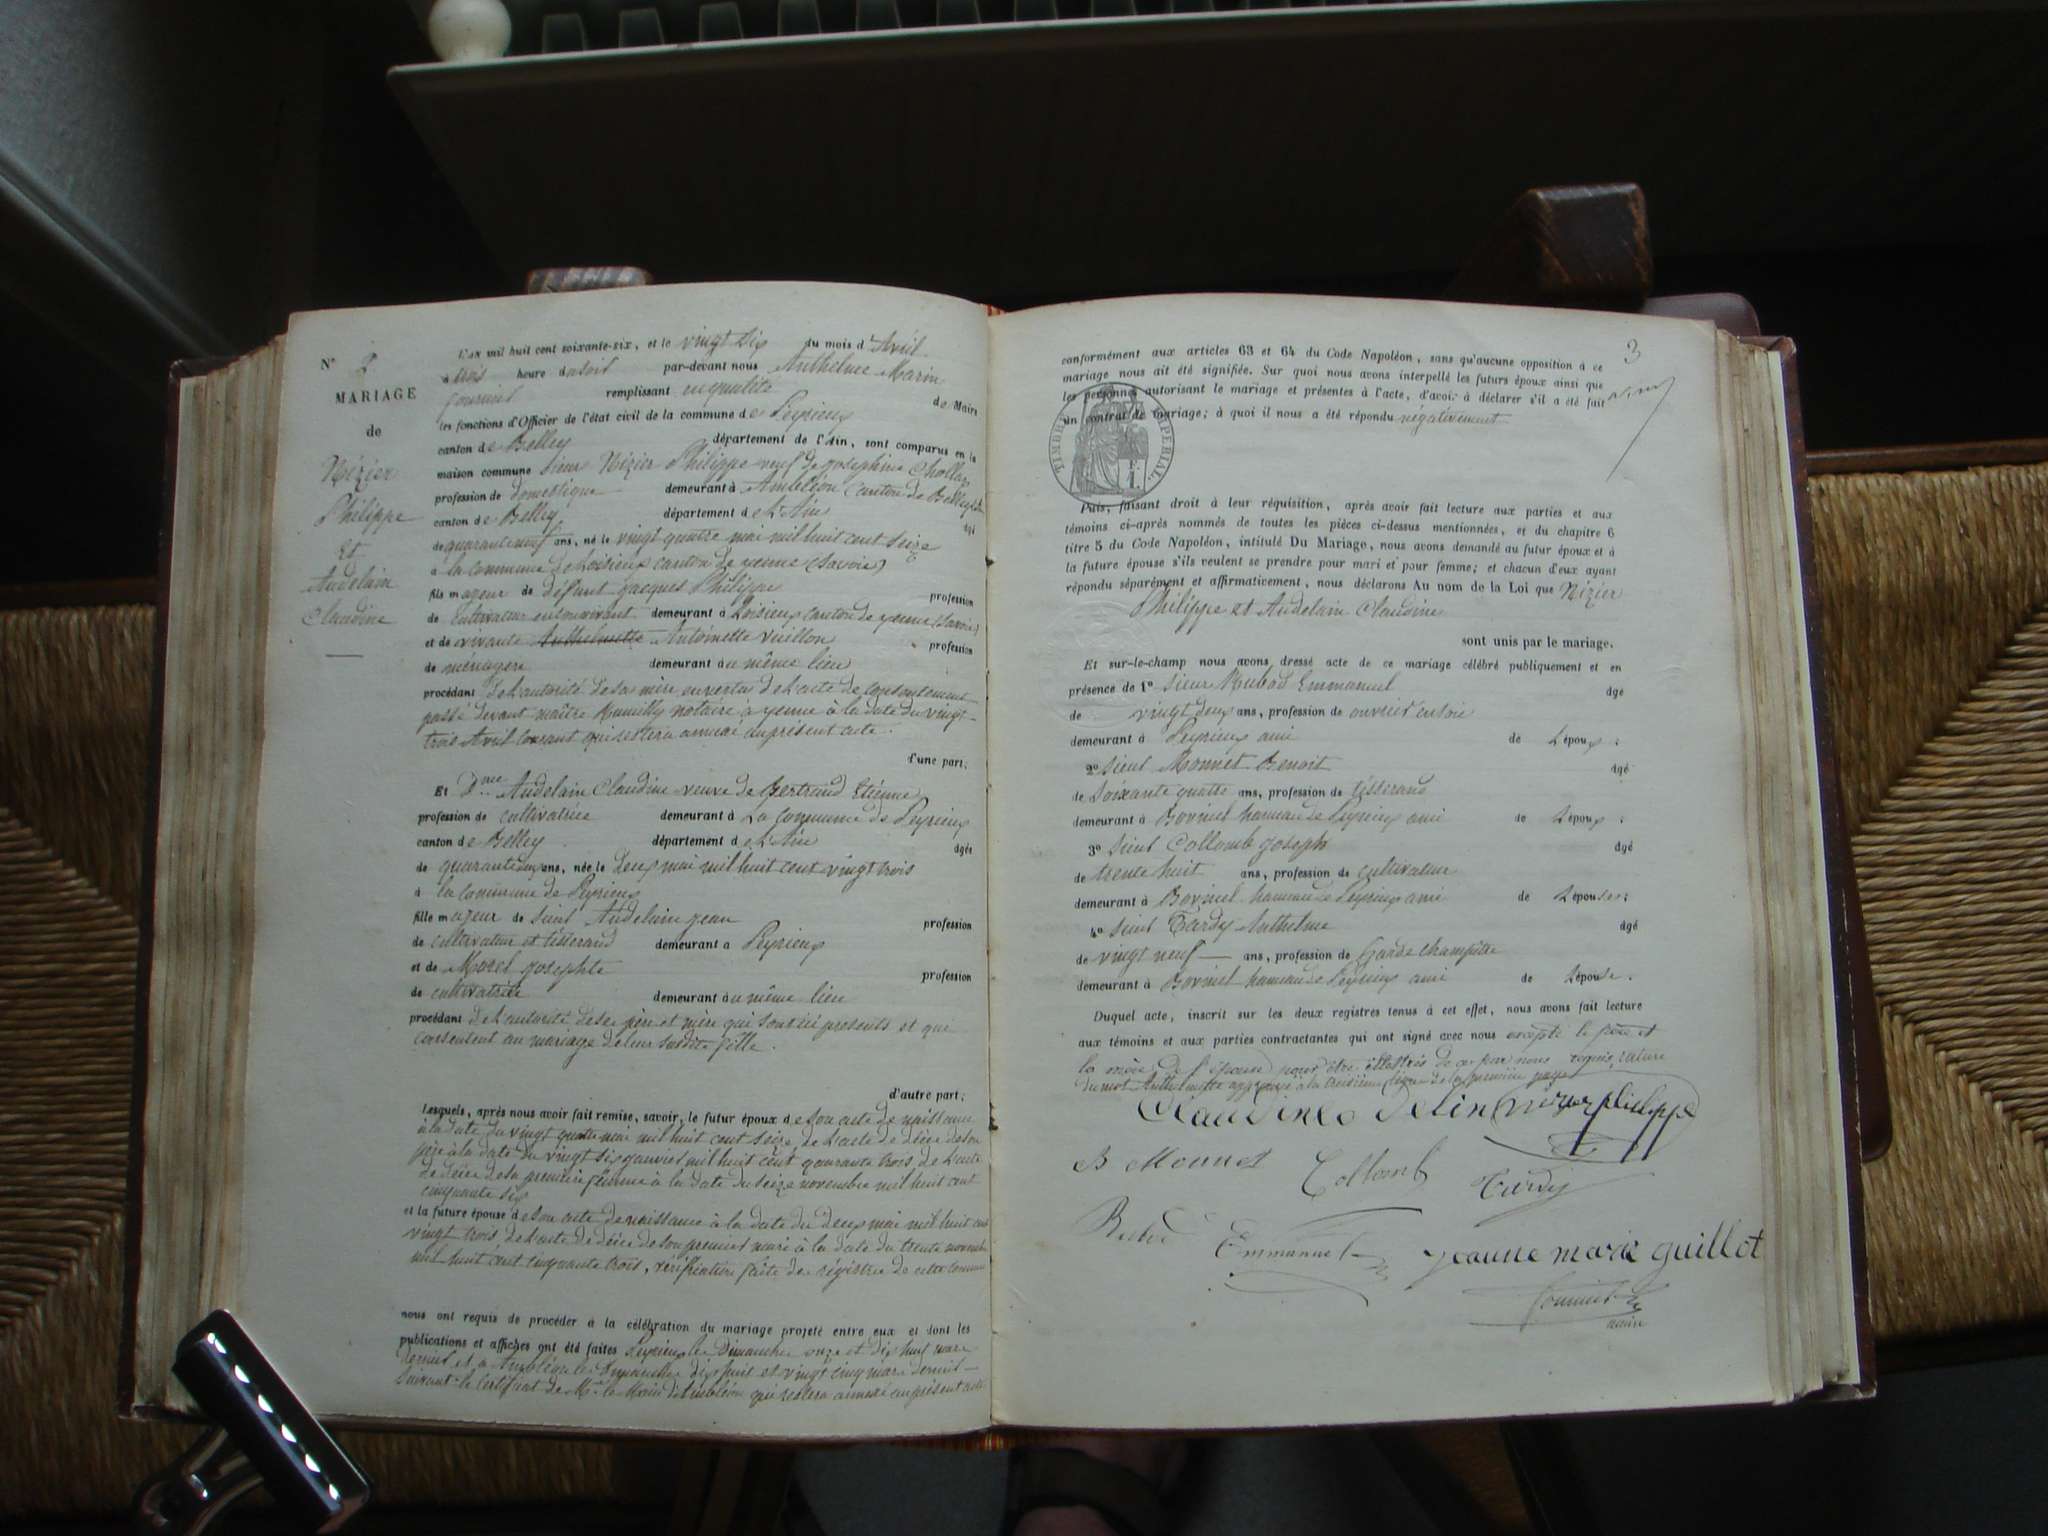 N° 2
MARIAGE
de
Nizier
Philippe
Et
Audelain
Claudine
L'an mil huit cent soixante-six, et le vingt six du mois d'Avril
à trois heure du soir par-devant nous Anthelme Marin
remplissant en qualité de Maire
les fonctions d'Officier de l'état civil de la commune de Peyrieux
canton de Belley département de l'Ain, sont comparus en la
maison commune Sieur Nizier Philippe veuf de Josephine Chollat
profession de domestique demeurant à Ambléon Canton de Belley
canton de Belley département de L'Ain âgé
de quarante neuf ans, né le vingt quatre mai mil huit cent seize
à la commune de Loisieux canton de yenne (Savoie)
fils majeur de défunt Jacques Philippe profession
de Cultivateur en son vivant demeurant à Loisieux canton de yenne (Savoie)
et de vivante Anthelmette Antoinette Vuillon profession
de ménagère demeurant au même lieu
procédant de L'autorité de sa mère en vertu de L'acte de consentement
passé devant maître Rumilly notaire à yenne à la date du vingt-
trois Avril courant qui restera annexé au présent acte.
d'une part;
Et D.me Audelain Claudine veuve de Bertrand Etienne
profession de cultivatrice demeurant à La Commune de Peyrieux
canton de Belley département de L'Ain âgée
de quarante deux ans, née le Deux mai mil huit cent vingt trois
à la Commune de Peyrieux
fille majeur de Sieur Audelain Jean profession
de cultivateur et tisserand demeurant à Peyrieux
et de Morel Josephte profession
de cultivatrice demeurant au même lieu
procédant de L'autorité de ses père et mère qui sont ici présents et qui
consentent au mariage de leur susdite fille.
d'autre part;
Lesquels, après nous avoir fait remise, savoir, le futur époux de son acte de naissance
à la date du vingt quatre mai mil huit cent seize, de L'acte de décès de son
père à la date du vingt six janvier mil huit cent quarante trois de L'acte
de décès de sa première femme à la date du seize novembre mil huit cent
cinquante six
et la future épouse de son acte de naissance à la date du deux mai mil huit cent
vingt trois de L'acte de décès de son premier mari à la date du trente novembre
mil huit cent cinquante trois, vérification faite des régistres de cette commune
nous ont requis de procéder à la célébration du mariage projeté entre eux et dont les
publications et affiches ont été faites Peyrieux les Dimanches onze et dix huit mars
dernier et à Ambléon les Dimanches dix huit et vingt cinq mars dernier
suivant le certificat de Mr le Maire d'Ambléon qui restera annexé au présent acte
3
conformément aux articles 63 et 64 du Code Napoléon, sans qu'aucune opposition à ce
mariage nous ait été signifiée. Sur quoi nous avons interpellé les futurs époux ainsi que
les personnes autorisant le mariage et présentes à l'acte, d'avoir à déclarer s'il a été fait
un contrat de mariage; à quoi il nous a été répondu négativement
TIMBRE IMPERIAL
Puis, faisant droit à leur réquisition, après avoir fait lecture aux parties et aux
témoins ci-après nommés de toutes les pièces ci-dessus mentionnées, et du chapitre 6
titre 5 du Code Napoléon, intitulé Du Mariage, nous avons demandé au futur époux et à
la future épouse s'ils veulent se prendre pour mari et pour femme; et chacun d'eux ayant
répondu séparément et affirmativement, nous déclarons Au nom de la Loi que Nizier
Philippe et Audelain Claudine
sont unis par le mariage.
Et sur-le-champ nous avons dressé acte de ce mariage célébré publiquement et en
présence de 1° Sieur Rubod Emmanuel âgé
de vingt deux ans, profession de ouvrier en soie
demeurant à Peyrieux ami de L'époux;
2° Sieur Monnet Benoit âgé
de Soixante quatre ans, profession de tisserand
demeurant à Bovinel hameau de Peyrieux ami de L'époux;
3° Sieur Collomb Joseph âgé
de trente huit ans, profession de cultivateur
demeurant à Bovinel hameau de Peyrieux ami de L'épouse;
4° Sieur Tardy Anthelme âgé
de vingt neuf ans, profession de Garde Champêtre
demeurant à Bovinel hameau de Peyrieux ami de L'épouse.
Duquel acte, inscrit sur les deux registres tenus à cet effet, nous avons fait lecture
aux témoins et aux parties contractantes qui ont signé avec nous excepté le père et
la mère de l'épouse pour être illettrés de ce par nous requis, rature
du mot Anthelmette approuvé à la treizième ligne de la première page
Claudine Delin nizier philippe
B Monnet Collomb Tardy
Rubod Emmanuel jeanne marie guillot
maire